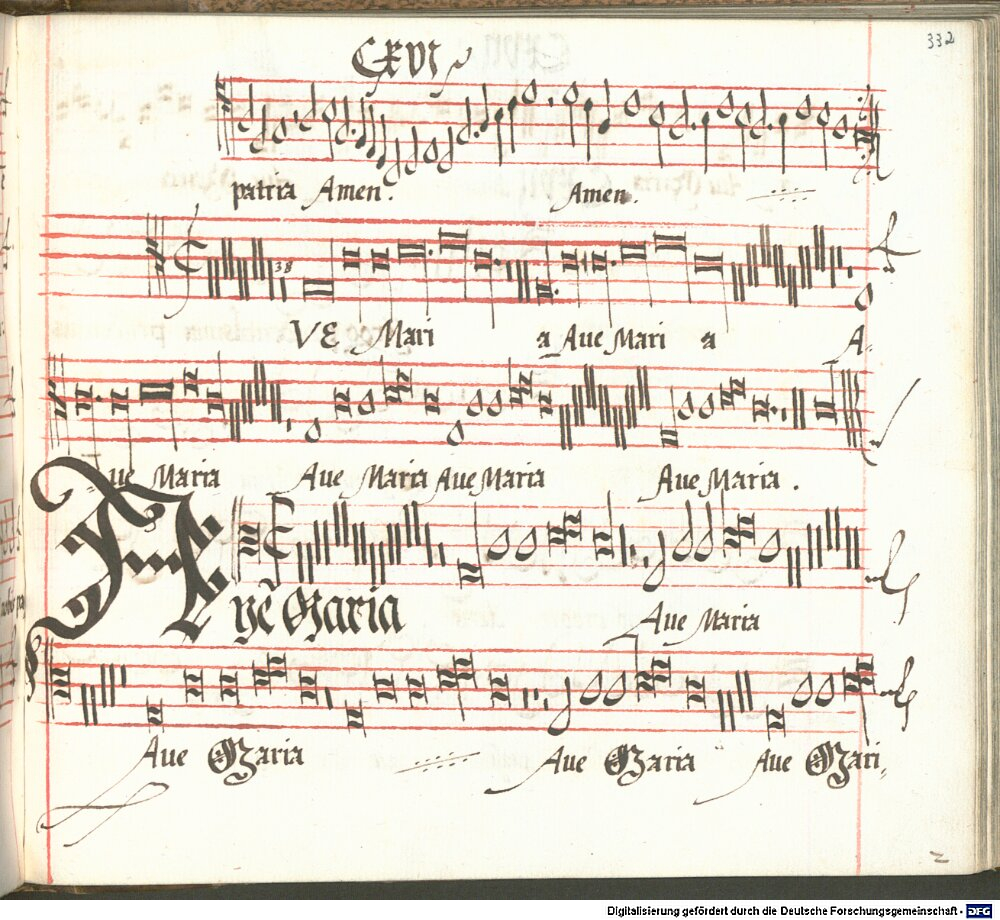 332
CXVI
patria Amen. Amen.
38
VE Mari a Aue Mari a A.
ue Maria Aue Maria Aue Maria Aue Maria.
Aue Maria
Aue Maria Aue Maria Aue Mari
Digitalisierung gefördert durch die Deutsche Forschungsgemeinschaft - DFG